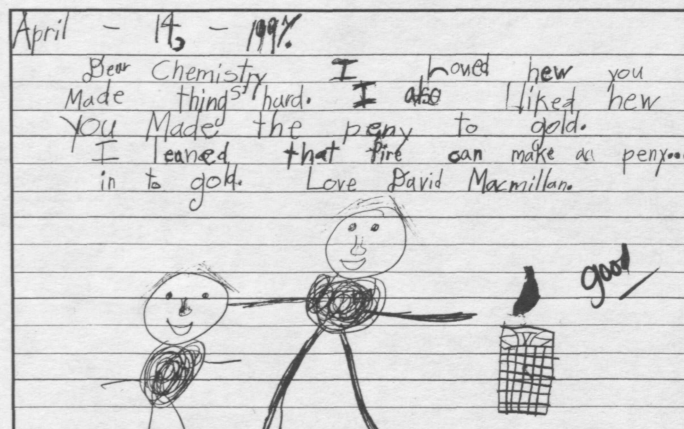 April - 14, - 1997.
Dear Chemistry I loved hew you
Made things hard. I also liked hew
you Made the peny to gold.
I leaned that fire can make a peny...
in to gold. Love David Macmillan.
good